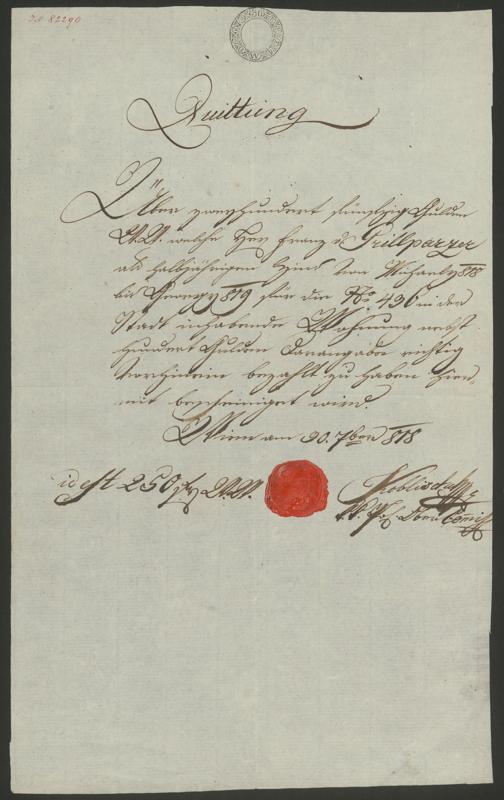 I.N. 82290
Quittung
Über zweyhundert fünfzig Gulden
W.W. welche Herr Franz v. Grillparzer
als halbjährigen Zins von Michaely 818
bis Georgy 819 für die No. 436 in der
Stadt inhabende Wohnung nebst
hundert Gulden Darangabe richtig
vorhinein bezahlt zu haben hier-
mit bescheiniget wird.
Wien am 30. 7ber 818
id est 250 W.W.